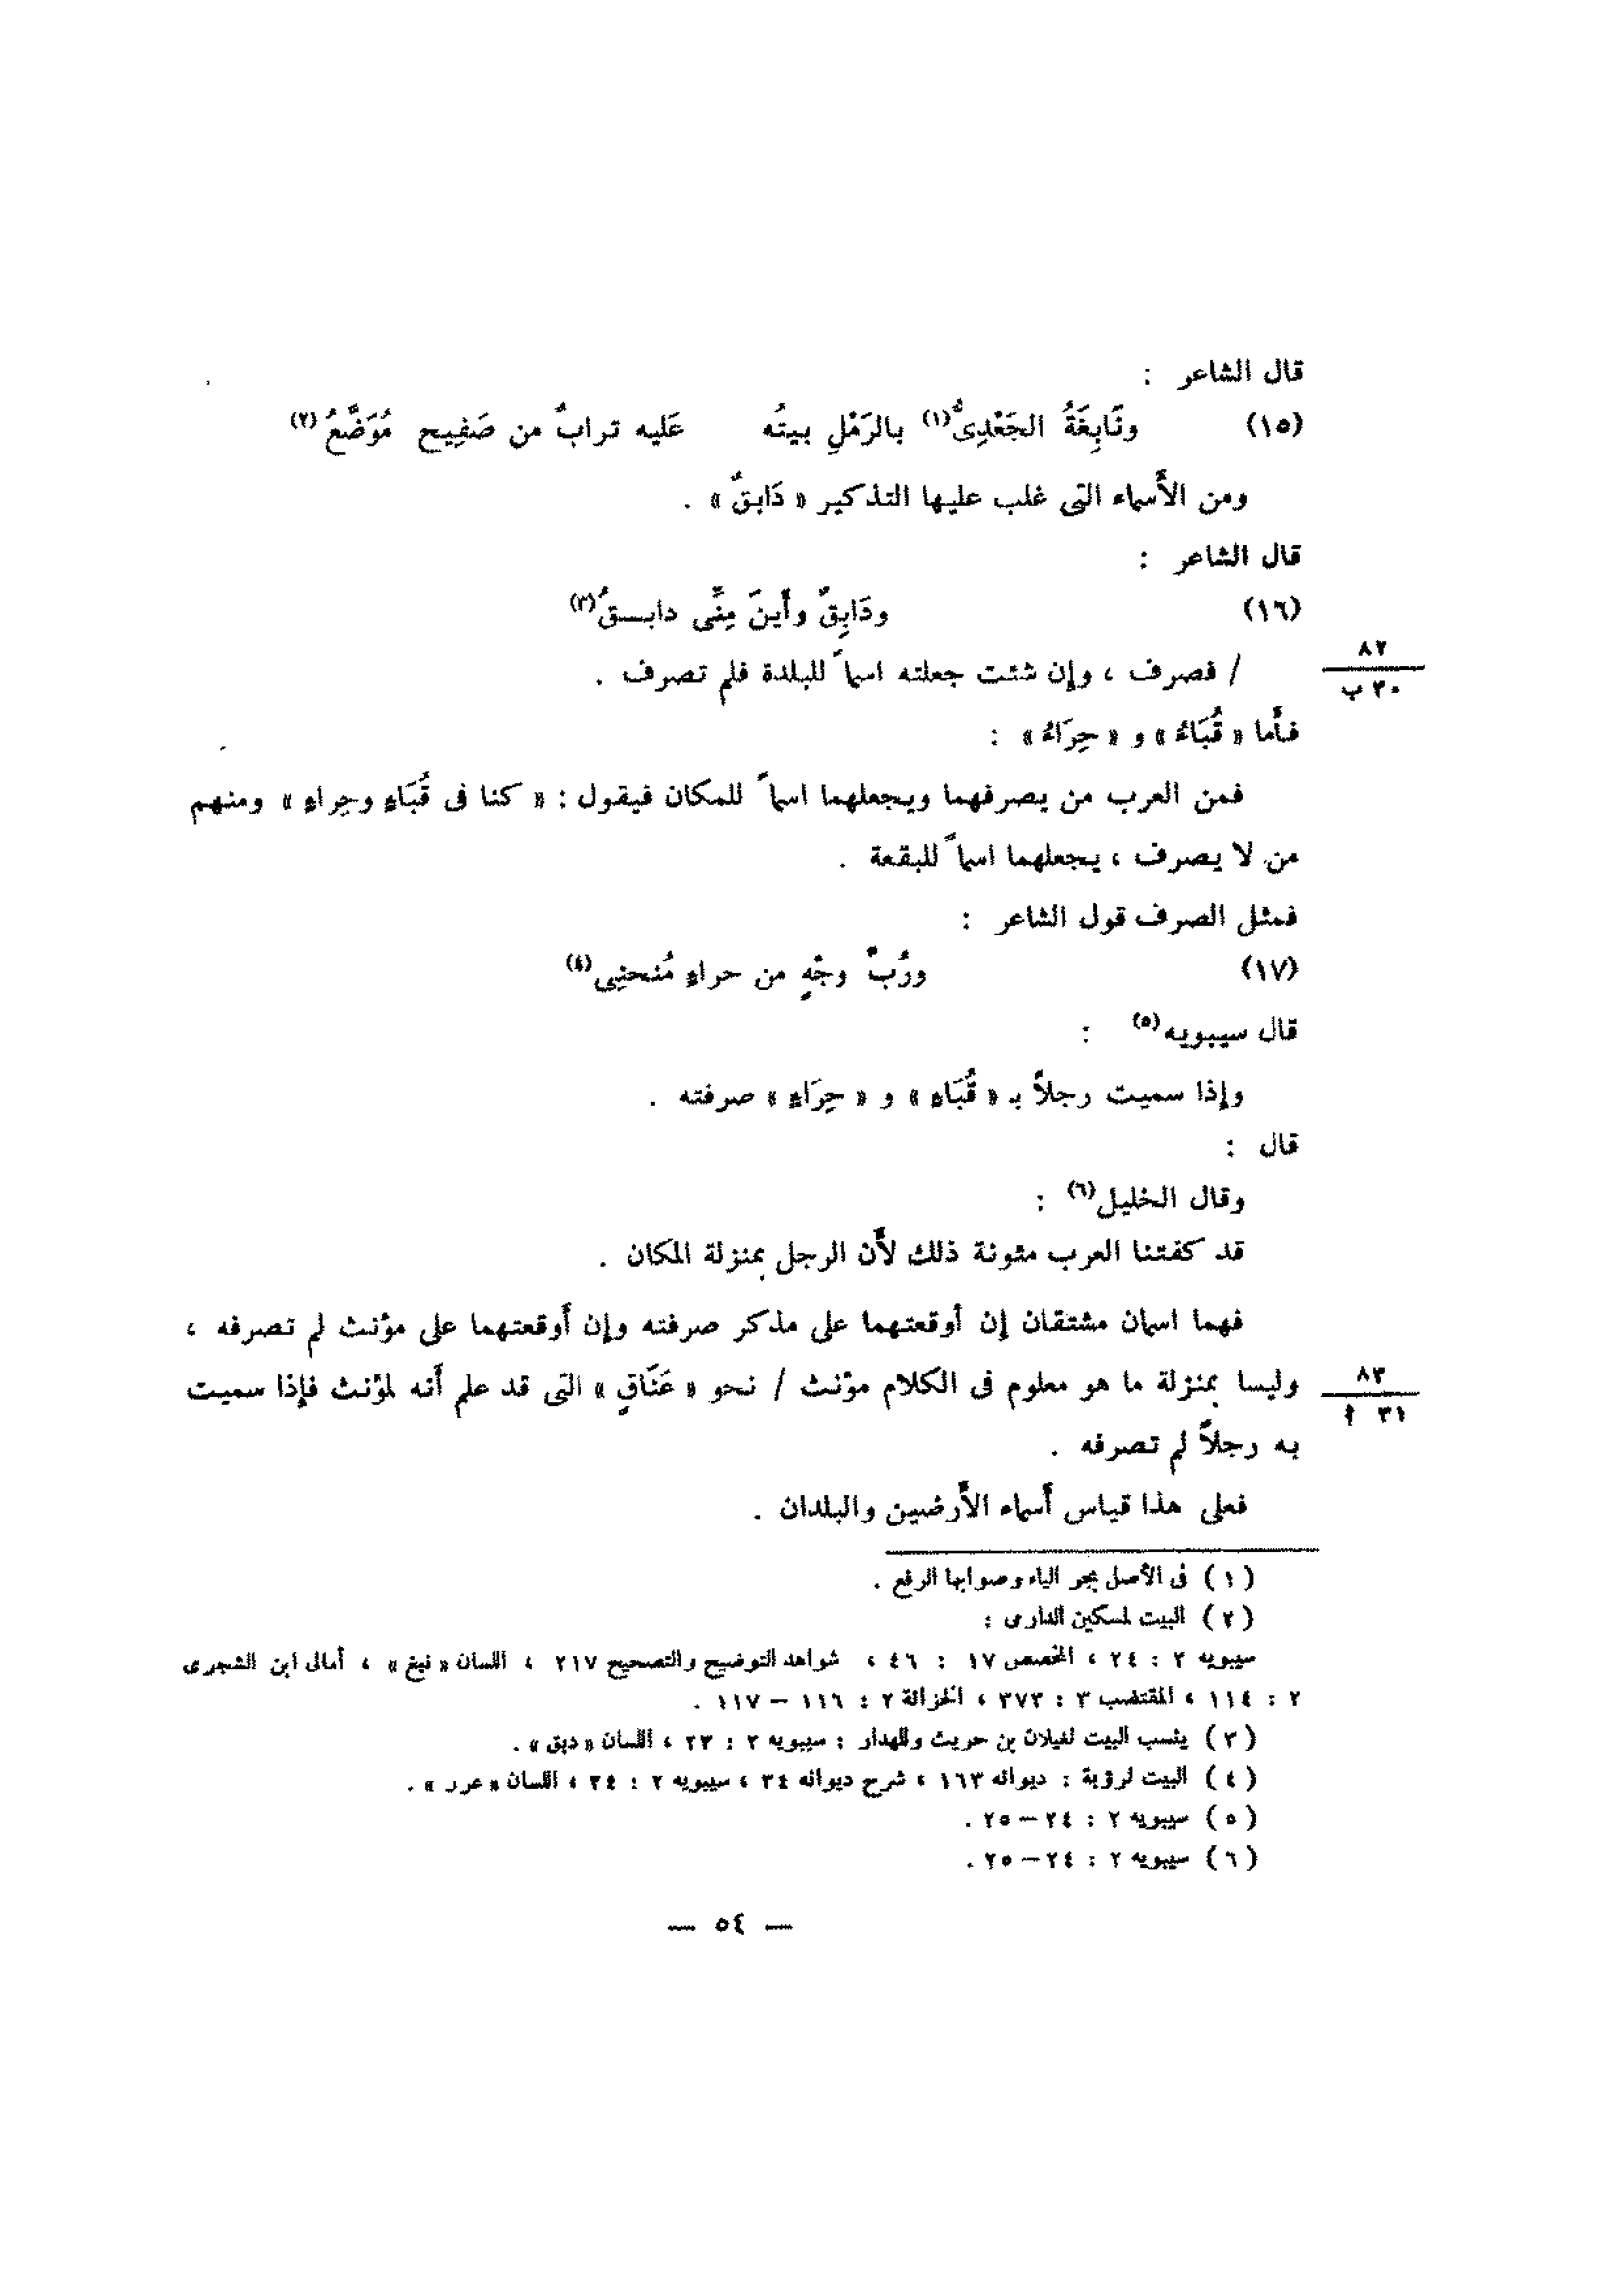 قال الشاعر :
(١٥) ونَابِغَةُ الجَعْدِىُّ(١) بالرَمْلِ بيتُه عَليه ترابٌ من صَفِيح مُوَضَّعُ(٢)
ومن الأَسماء التى غلب عليها التذكير « دَابقٌ » .
قال الشاعر :
(١٦) ودَابِقٌ وأَينَ مِنَّى دابــقُ(٣)
٨٢
٣٠ ب
/ فصرف ، وإن شئت جعلته اسماً للبلدة فلم تصرف .
فأَما « قُبَاءُ » و « حِرَاءُ » :
فمن العرب من يصرفهما ويجعلهما اسماً للمكان فيقول : « كنا فى قُبَاءٍ وحِراءٍ » ومنهم
من لا يصرف ، يجعلهما اسماً للبقعة .
فمثل الصرف قول الشاعر :
(١٧) ورُبَّ وجْهٍ من حراءٍ مُنحنِى(٤)
قال سيبويه(٥) :
وإذا سميت رجلاً بـ « قُبَاءٍ » و « حِرَاءٍ » صرفته .
قال :
وقال الخليل(٦) :
قد كفتنا العرب مئونة ذلك لأَن الرجل بمنزلة المكان .
فهما اسمان مشتقان إن أوقعتهما على مذكر صرفته وإن أَوقعتهما على مؤنث لم تصرفه ،
٨٣
٣١ أ
وليسا بمنزلة ما هو معلوم فى الكلام مؤنث / نحو « عَنَاقٍ » التى قد علم أَنه لمؤنث فإذا سميت
به رجلاً لم تصرفه .
فعلى هذا قياس أَسماء الأَرضين والبلدان .
( ١ ) فى الأصل بجر الياء وصوابها الرفع .
( ٢ ) البيت لمسكين الدارمى :
سيبويه ٢ : ٢٤ ، المخصص ١٧ : ٤٦ ، شواهد التوضيح والتصحيح ٢١٧ ، اللسان « نبغ » ، أمالى ابن الشجرى
٢ : ١١٤ ، المقتضب ٣ : ٣٧٣ ، الخزانة ٢ : ١١٦ – ١١٧ .
( ٣ ) ينسب البيت لغيلان بن حريث وللهدار : سيبويه ٢ : ٢٣ ، اللسان « دبق » .
( ٤ ) البيت لرؤبة : ديوانه ١٦٣ ، شرح ديوانه ٣٤ ، سيبويه ٢ : ٢٤ ، اللسان « عرر » .
( ٥ ) سيبويه ٢ : ٢٤ – ٢٥ .
( ٦ ) سيبويه ٢ : ٢٤ – ٢٥ .
— ٥٤ —